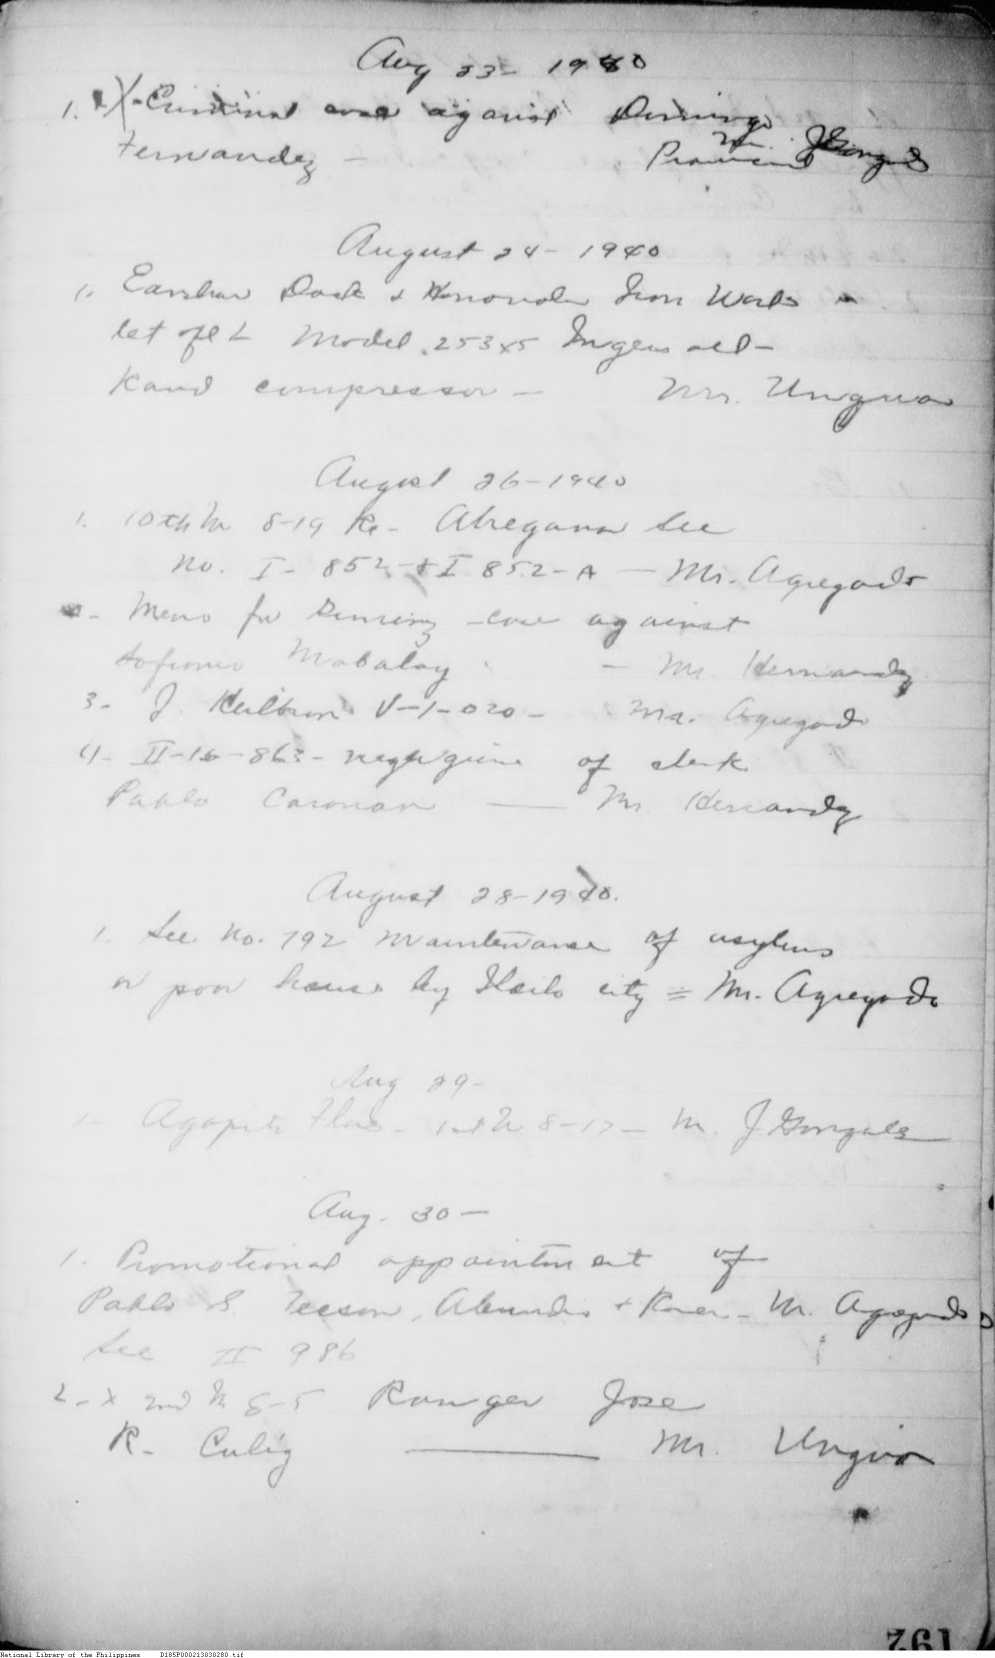 Aug 23 - 1940
1. X - Criminal case against Domingo
Fernandez -
Mr. J Gonzales
August 24 - 1940
1. Earnshaw Dock & Honolulu Iron Works
let of 1 Model 253 x 5 Ingersoll -
Rand compressor - Mr. Unguia
August 26 - 1940
1. 10th In 8-19 Re -
See
No. I - 852 - & I 852 - A - Mr. Agregado
Memo for - case against
Sofronio Mabalay - Mr. Hernandez
3 - J. V-1-020 - Mr. Agregado
4 - II-16-863 - negligence of clerk
Pablo Caronan — Mr Hernandez
August 28 - 1940.
1. See No. 792 maintenance of asylums
or poor house by Iloilo city = Mr. Agregado
Aug 29 -
1 - Agapito 8-17 - Mr. J Gonzales
Aug. 30 -
1. Promotional appointment of
Pablo S. Tecson, & - Mr. Agregado
See II 986
2 - x 2nd In 8-5 Ranger Jose
R. Culig — Mr. Unguia
761
National Library of the Philippines D185P000213030280.tif